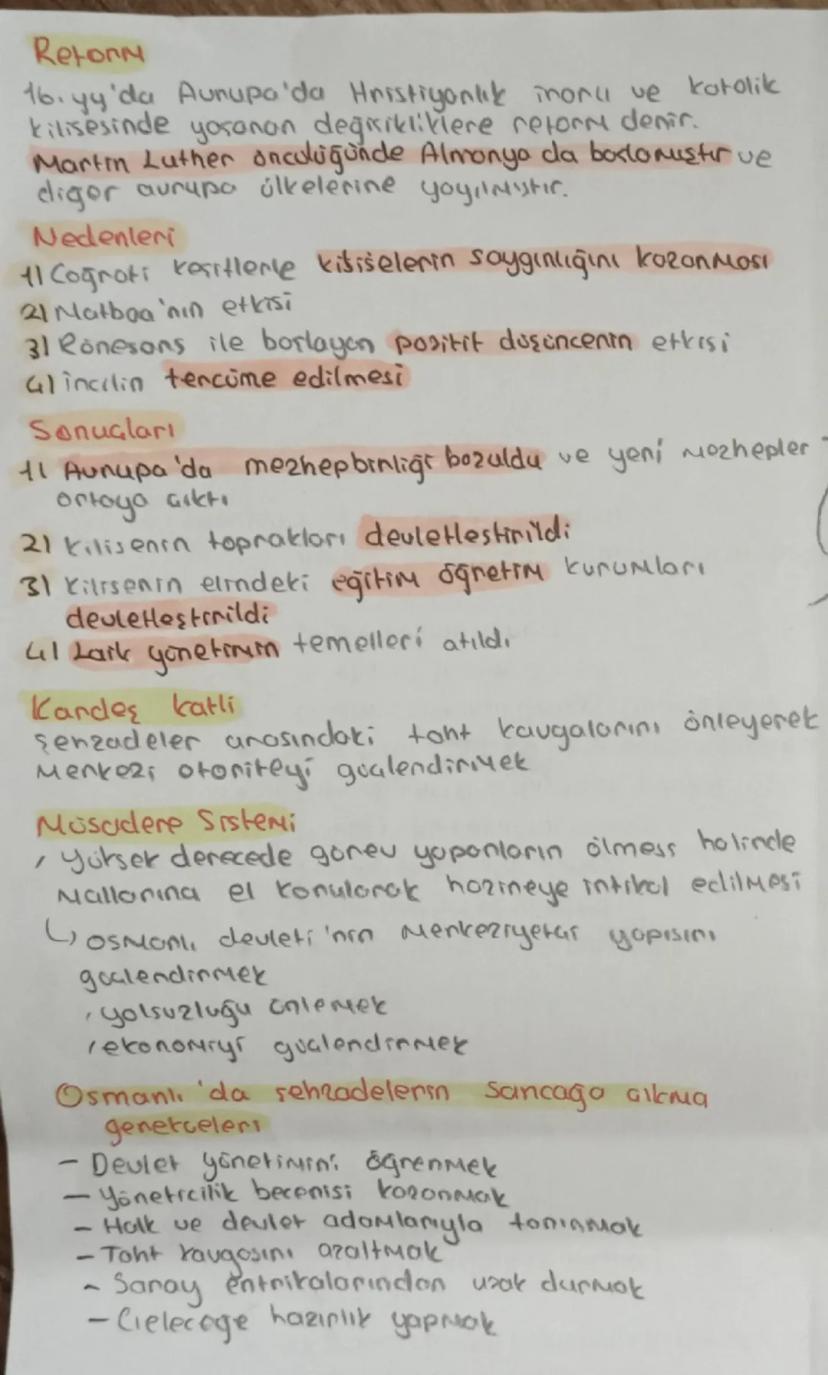 Reform
16. yy'da Avrupa'da Hristiyanlık inancı ve katolik
kilisesinde yaşanan değişikliklere reform denir.
Martin Luther öncülüğünde Almanya da başlamıştır ve
diğer avrupa ülkelerine yayılmıştır.
Nedenleri
1) Coğrafi keşiflerle kiliselerin saygınlığını kazanması
2) Matbaa'nın etkisi
3) Rönesans ile başlayan pozitif düşüncenin etkisi
4) incilin tercüme edilmesi
Sonuçları
1) Avrupa'da mezhepbirliği bozuldu ve yeni mezhepler
ortaya çıktı
2) kilisenin toprakları devletleştirildi
3) kilisenin elindeki eğitim öğretim kurumları
devletleştirildi
4) Laik yönetimin temelleri atıldı
Kardeş katli
Şehzadeler arasındaki taht kavgalarını önleyerek
merkezi otoriteyi güçlendirmek
Müsadere Sistemi
, yüksek derecede görev yapanların ölmesi halinde
mallarına el konularak hazineye intikal edilmesi
↳ osmanlı devleti'nin merkeziyetçi yapısını
güçlendirmek
, yolsuzluğu önlemek
, ekonomiyi güçlendirmek
Osmanlı'da şehzadelerin sancağa çıkma
gerekçeleri
- Devlet yönetimini öğrenmek
- Yöneticilik becerisi kazanmak
- Halk ve devlet adamlarıyla tanınmak
- Taht kavgasını azaltmak
- Saray entrikalarından uzak durmak
- Geleceğe hazırlık yapmak